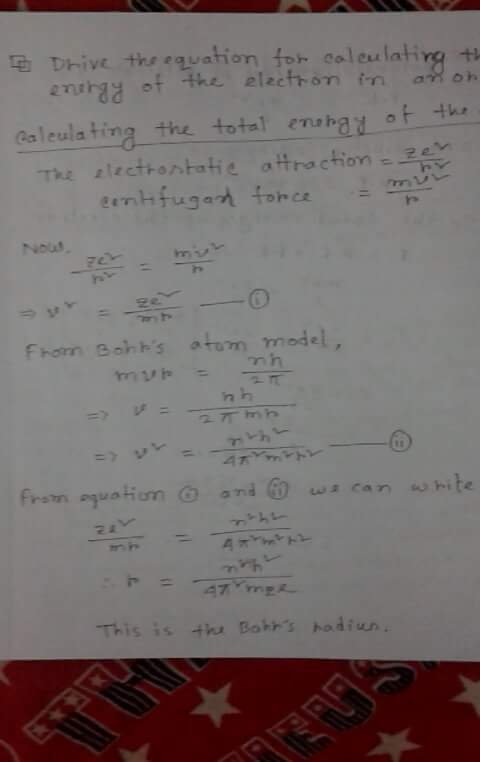 Drive the equation for calculating th
energy of the electron in an or
Calculating the total energy of the
The electrostatic attraction = ze²/r²
centifugan force = mv²/r
Now,
ze²/r² = mv²/r
⇒ v² = ze²/mr —— (i)
From Bohr's atom model,
mvr = nh/2π
=> v = nh/2πmr
=> v² = n²h²/4π²m²r² —— (ii)
From equation (i) and (ii) we can write
ze²/mr = n²h²/4π²m²r²
∴ r = n²h²/4π²mze
This is the Bohr's radius.